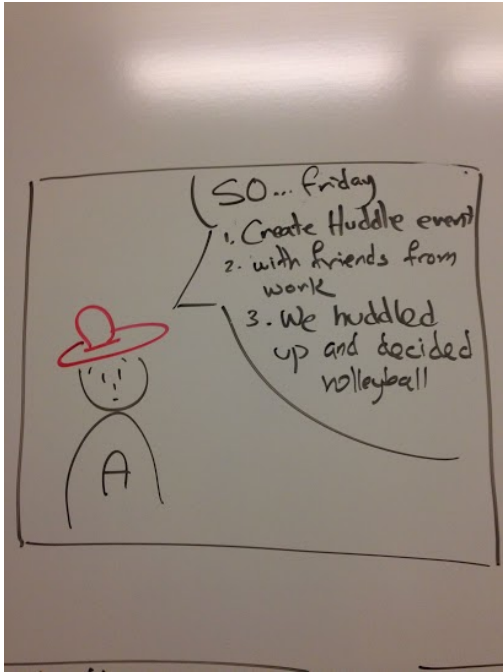 SO... friday
1. Create Huddle event
2. with friends from
work
3. We huddled
up and decided
volleyball
A